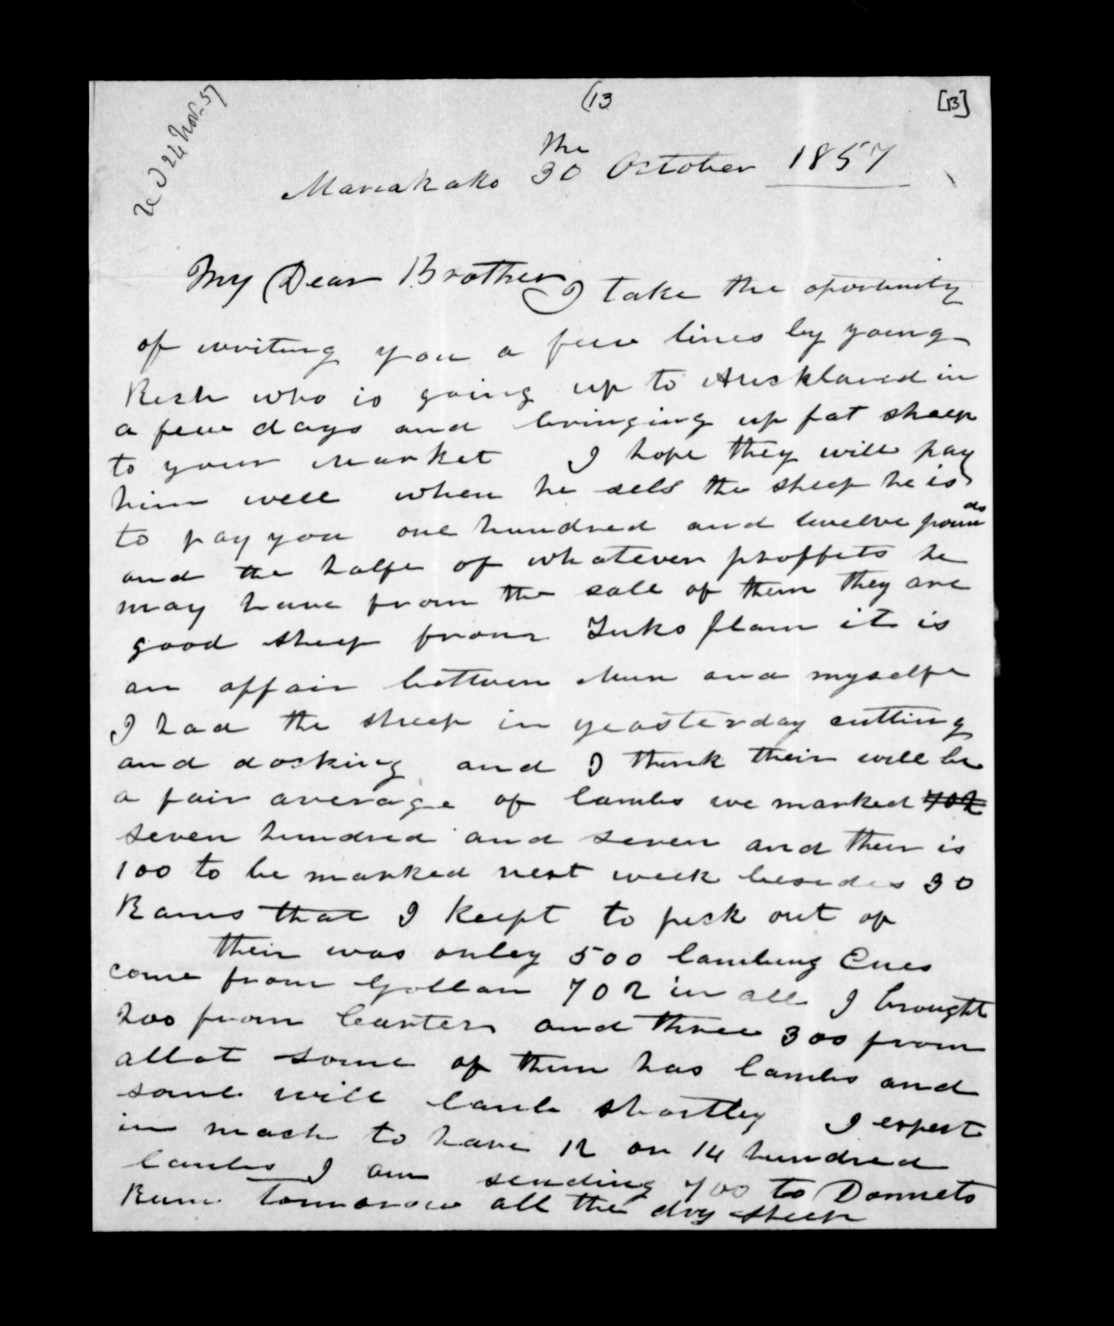 (13
[13]
24 Nov. 57
the
Maraakako 30 October 1857
My Dear Brother I take the oportunity
of writing you a few lines by young
Rich who is going up to Auckland in
a few days and bringing up fat sheep
to your market I hope they will pay
him well when he sels the sheep he is
to pay you one hundred and twelve pounds
and the halfe of whatever proffets he
may have from the sale of them they are
good sheep from it is
an affair between and myselfe
I had the sheep in yeasterday cutting
and docking and I think their will be
a fair average of lambs we marked 702
seven hundred and seven and their is
100 to be marked next week besides 30
Rams that I keept to pick out of
their was onley 500 lambing Ewes
come from Gollan 702 in all I brought
200 from Carters and three 300 from
allot some of them has lambs and
some will lamb shortley I expect
in mach to have 12 or 14 hundred
lambs I am sending 700 to Donnets
Run tomorow all the dry sheep